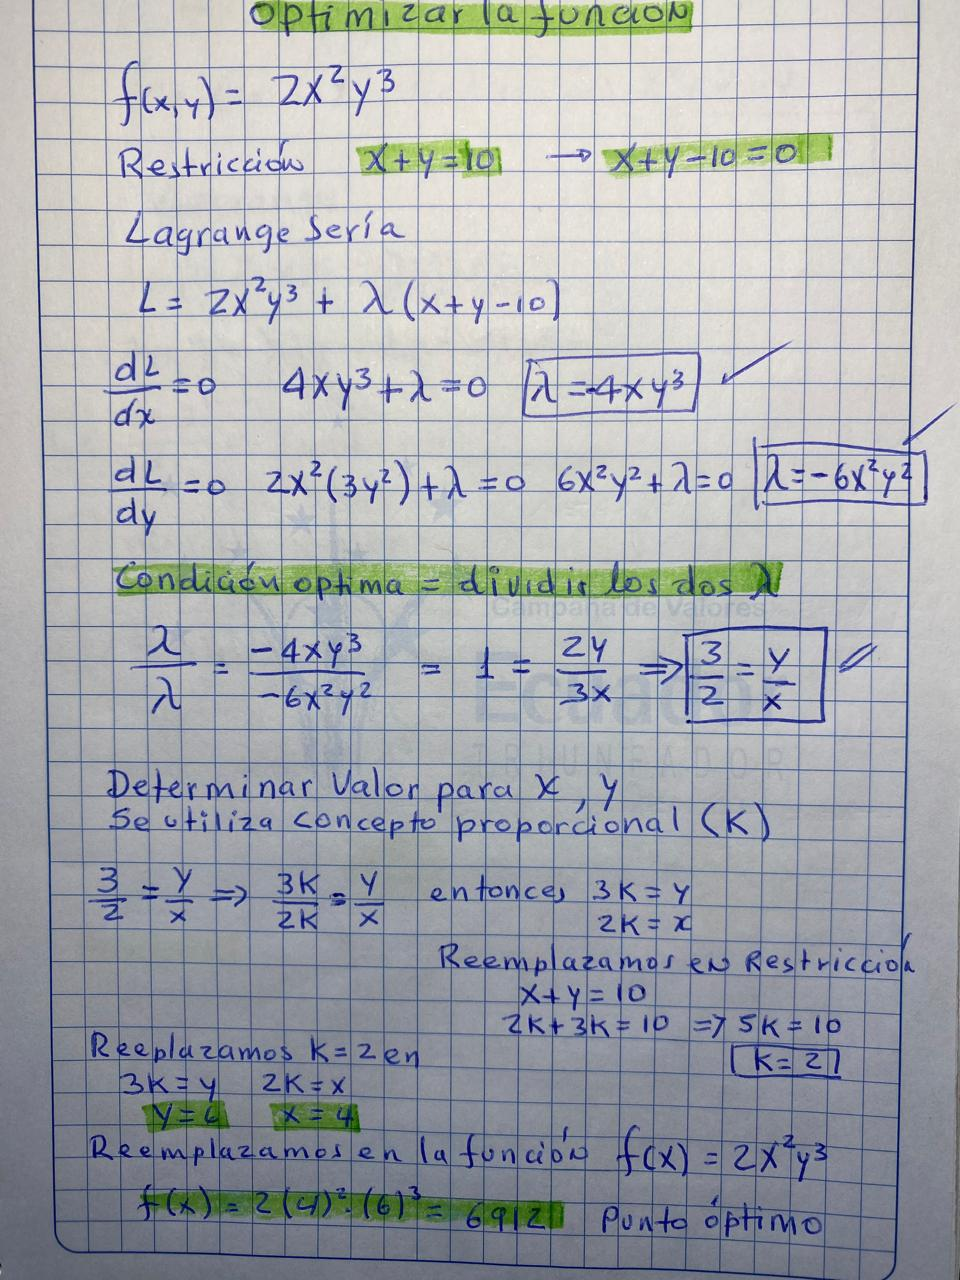 Optimizar la función
f(x,y) = 2x²y³
Restricción x+y=10 → x+y-10=0
Lagrange Sería
L = 2x²y³ + λ(x+y-10)
dL/dx =0 4xy³+λ=0 λ=-4xy³
dL/dy =0 2x²(3y²)+λ=0 6x²y²+λ=0 λ=-6x²y²
Condición optima = dividir los dos λ
Campaña de Valores
λ/λ = -4xy³/-6x²y² = 1 = 2y/3x ⇒ 3/2 = y/x
Ecuador
TRIUNFADOR
Determinar Valor para x, y
Se utiliza concepto proporcional (K)
3/2 = y/x ⇒ 3K/2K = y/x entonces 3K=y
2K=x
Reemplazamos en Restricción
x+y=10
2K+3K=10 ⇒ 5K=10
Reeplazamos K=2 en K=2
3K=y 2K=x
y=6 x=4
Reemplazamos en la función f(x) = 2x²y³
f(x) = 2(4)²·(6)³ = 6912 Punto óptimo